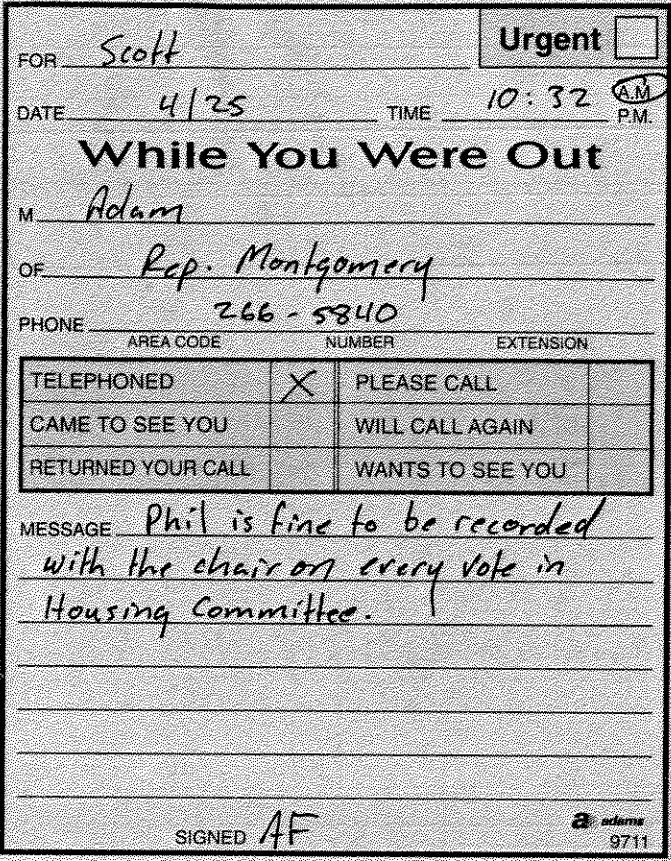 Urgent
FOR Scott
DATE 4/25 TIME 10:32 A.M.
P.M.
While You Were Out
M Adam
OF Rep. Montgomery
PHONE 266-5840
AREA CODE NUMBER EXTENSION
TELEPHONED X PLEASE CALL
CAME TO SEE YOU WILL CALL AGAIN
RETURNED YOUR CALL WANTS TO SEE YOU
MESSAGE Phil is fine to be recorded
with the chair on every vote in
Housing Committee.
SIGNED AF
a adams
9711